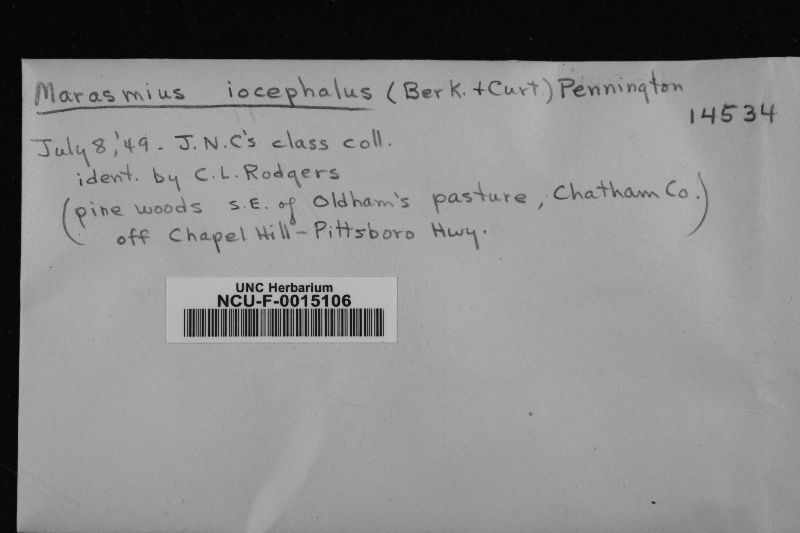 Marasmius iocephalus (Berk. + Curt.) Pennington
14534
July 8, '49 - J.N.C's class coll.
ident. by C.L. Rodgers
(pine woods S.E. of Oldham's pasture, Chatham Co.)
off Chapel Hill - Pittsboro Hwy.
UNC Herbarium
NCU-F-0015106